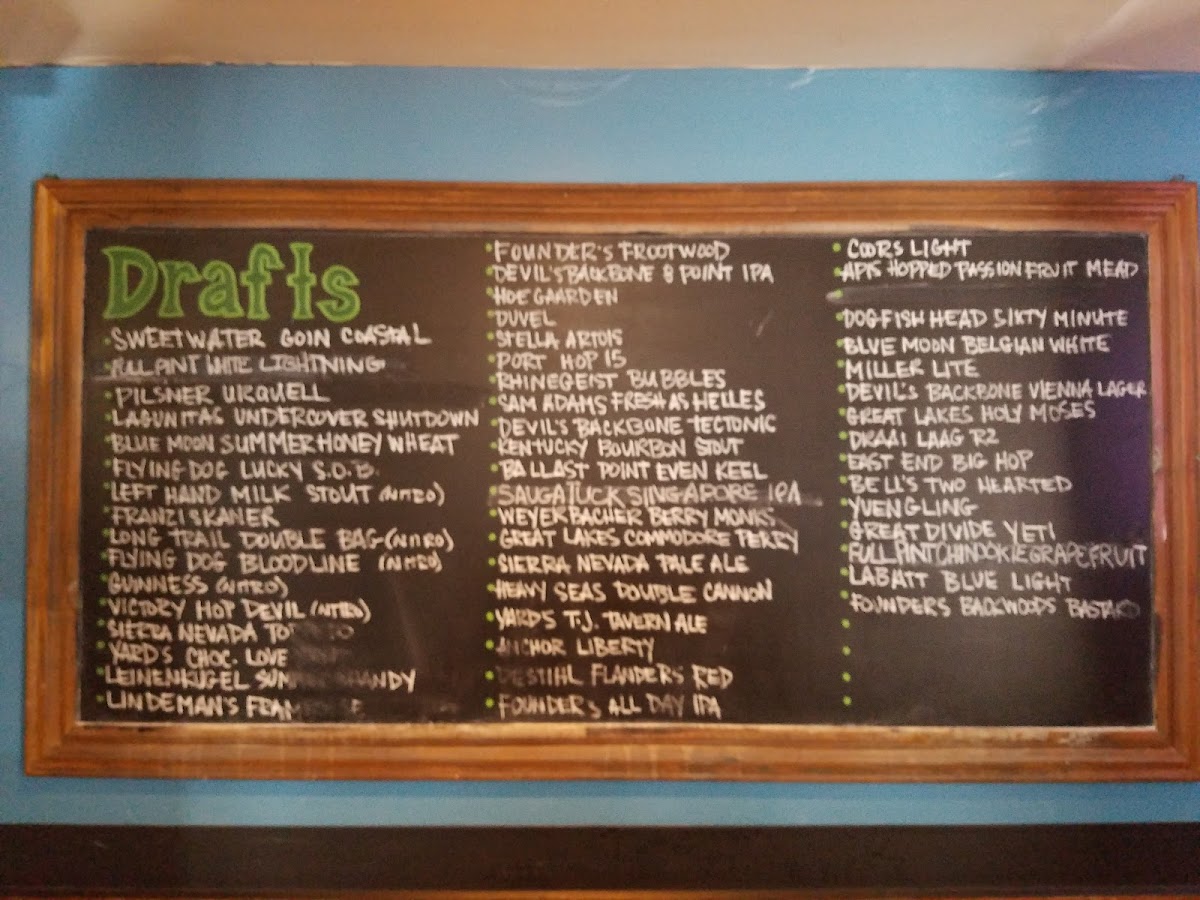 Drafts
SWEETWATER GOIN COASTAL
FULL PINT WHITE LIGHTNING
PILSNER URQUELL
LAGUNITAS UNDERCOVER SHUTDOWN
BLUE MOON SUMMER HONEY WHEAT
FLYING DOG LUCKY S.O.B.
LEFT HAND MILK STOUT (NITRO)
FRANZISKANER
LONG TRAIL DOUBLE BAG (NITRO)
FLYING DOG BLOODLINE (NITRO)
GUINNESS (NITRO)
VICTORY HOP DEVIL (NITRO)
SIERRA NEVADA
YARDS CHOC. LOVE
LEINENKUGEL SUMMER SHANDY
LINDEMAN'S
FOUNDER'S FROOTWOOD
DEVIL'S BACKBONE 8 POINT IPA
HOEGAARDEN
DUVEL
STELLA ARTOIS
PORT HOP 15
RHINEGEIST BUBBLES
SAM ADAMS FRESH AS HELLES
DEVIL'S BACKBONE TECTONIC
KENTUCKY BOURBON STOUT
BALLAST POINT EVEN KEEL
SAUGATUCK SINGAPORE IPA
WEYERBACHER BERRY MONKS
GREAT LAKES COMMODORE PERRY
SIERRA NEVADA PALE ALE
HEAVY SEAS DOUBLE CANNON
YARDS T.J. TAVERN ALE
ANCHOR LIBERTY
DESTIHL FLANDERS RED
FOUNDERS ALL DAY IPA
COORS LIGHT
APIS HOPPED PASSION FRUIT MEAD
DOGFISH HEAD SIXTY MINUTE
BLUE MOON BELGIAN WHITE
MILLER LITE
DEVIL'S BACKBONE VIENNA LAGER
GREAT LAKES HOLY MOSES
DRAAI LAAG R2
EAST END BIG HOP
BELL'S TWO HEARTED
YUENGLING
GREAT DIVIDE YETI
FULL PINT CHINOOKIE GRAPEFRUIT
LABATT BLUE LIGHT
FOUNDERS BACKWOODS BASTARD